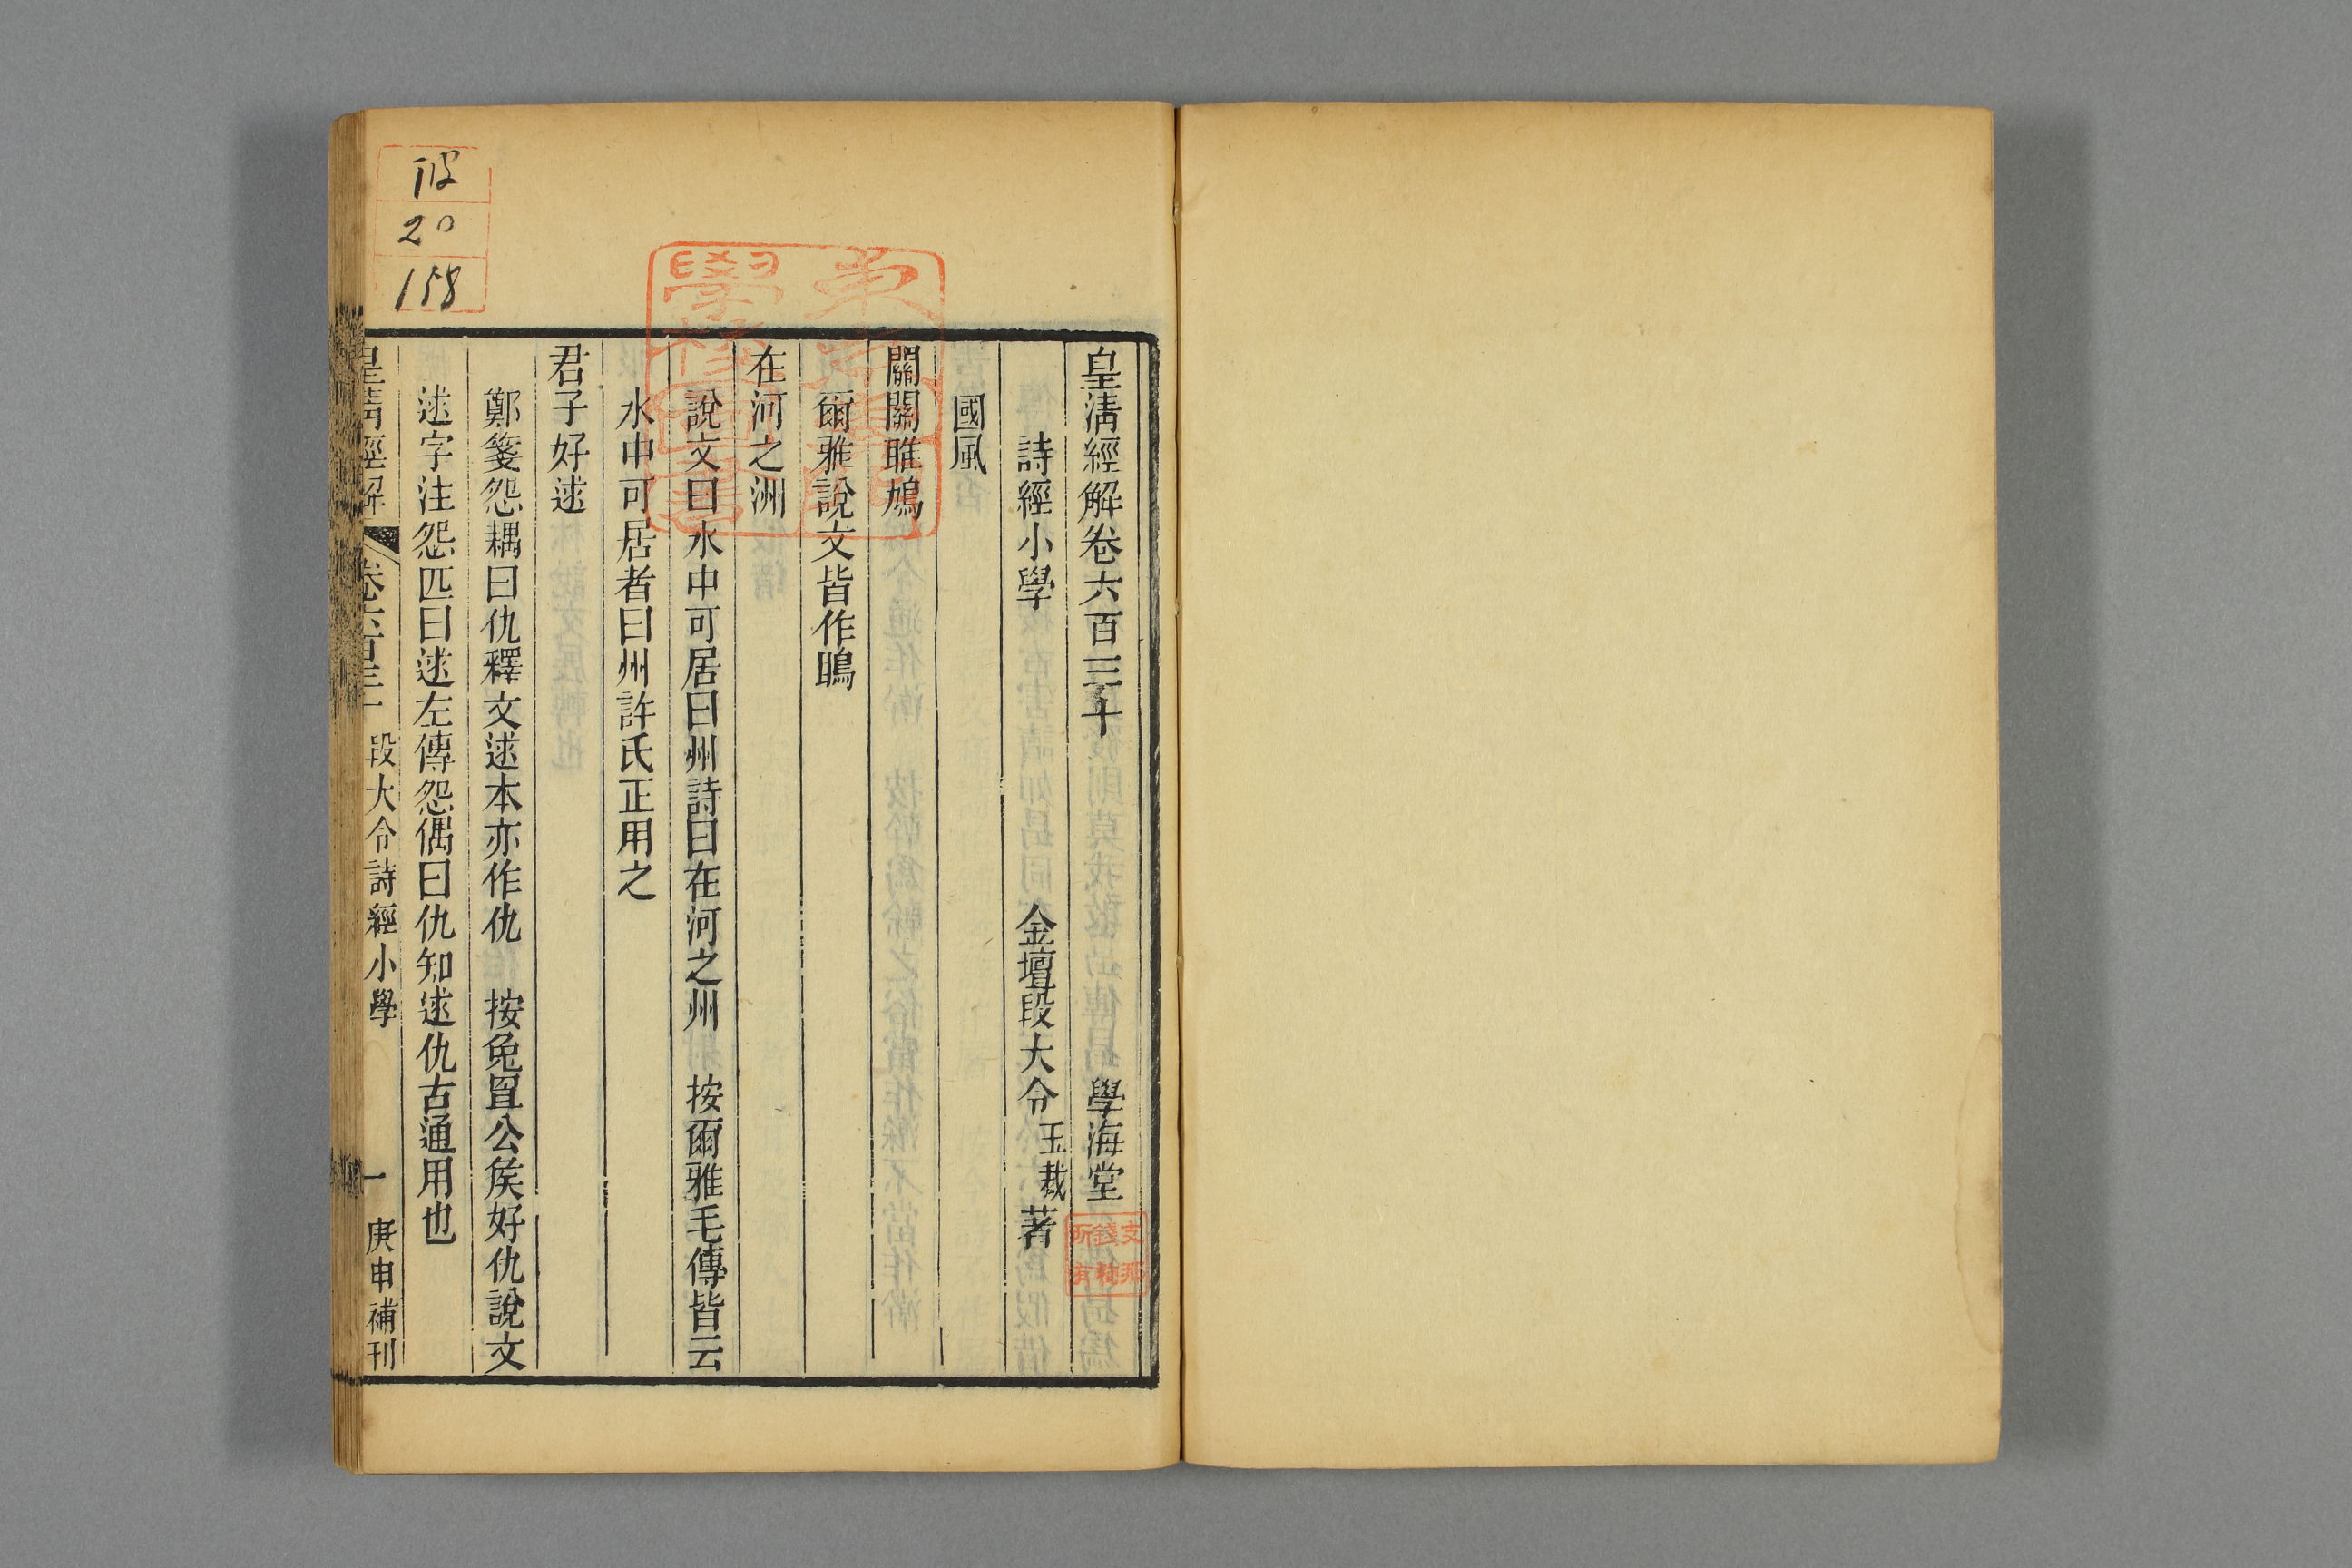 皇清經解卷六百三十 學海堂
詩經小學 金壇段大令玉裁著
國風
關關雎鳩
爾雅說文皆作鴡
在河之洲
說文曰水中可居曰州詩曰在河之州 按爾雅毛傳皆云
水中可居者曰州許氏正用之
君子好逑
鄭箋怨耦曰仇釋文逑本亦作仇 按兔罝公侯好仇說文
逑字注怨匹曰逑左傳怨偶曰仇知逑仇古通用也
皇清經解 卷六百三十 段大令詩經小學 一 庚申補刊
20
158